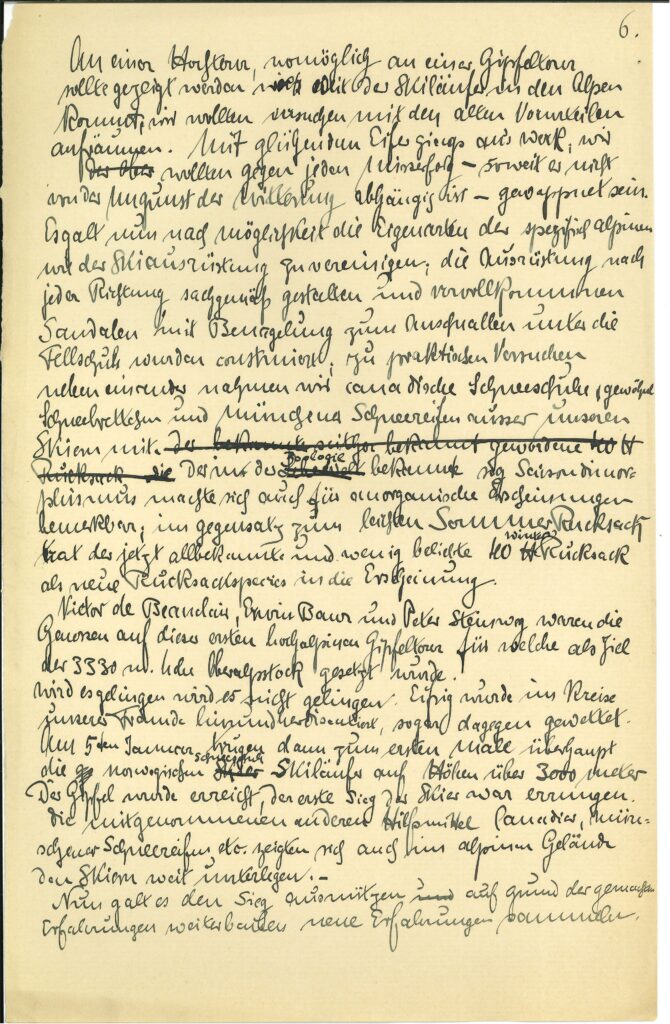 6.
An einer Hochtour, womöglich an einer Gipfeltour
sollte gezeigt werden wie weit der Skiläufer in den Alpen
kommt; wir wollten versuchen mit den alten Vorurteilen
aufräumen. Mit glühendem Eifer gings ans werk, wir
wollten gegen jeden Misserfolg – soweit er nicht
von der Ungunst der Witterung abhängig ist – gewappnet sein.
Es galt nun nach möglichkeit die Eigenarten der spezifisch alpinen
mit der Skiausrüstung zu vereinigen; die Ausrüstung nach
jeder Richtung sachgemäss gestalten und vervollkommnen
Sandalen mit Benagelung zum Anschnallen unter die
Fellschuhe wurden construiert; zu praktischen Versuchen
neben einander nahmen wir canadische Schneeschuhe, gewöhnl
Schneebrettchen und münchener Schneereifen ausser unseren
Skiern mit. der bekannte seither bekannt gewordene 40 ℔
Rucksack die Der in der Zoologie bekannte sog Saisondimor-
phismus machte sich auch für anorganische Erscheinungen
bemerkbar; im gegensatz zum leichten Sommer Rucksack
trat der jetzt allbekannte und wenig beliebte 40 ℔ winter Rucksack
als neue Rucksackspecies in die Erscheinung.
Victor de Beauclair, Erwin Baur und Peter Steinweg waren die
Genossen auf dieser ersten hochalpinen Gipfeltour für welche als Ziel
der 3330 m. hohe Oberalpstock gesetzt wurde.
wird es gelingen wird es nicht gelingen. Eifrig wurde im Kreise
unserer Freunde hin und her discutiert, sogar dagegen gewettet.
Am 5ten Januar trugen dann zum ersten male überhaupt
die norwegischen schneeschuh Skiläufer auf Höhen über 3000 meter
Der Gipfel wurde erreicht, der erste Sieg der Skier war errungen.
Die mitgenommenen anderen Hilfsmittel Canadier, Mün-
chener Schneereifen etc. zeigten sich auch im alpinen Gelände
den Skiern weit unterlegen. –
Nun galt es den Sieg ausnützen und auf grund der gemachten
Erfahrungen weiterbauen neue Erfahrungen sammeln.